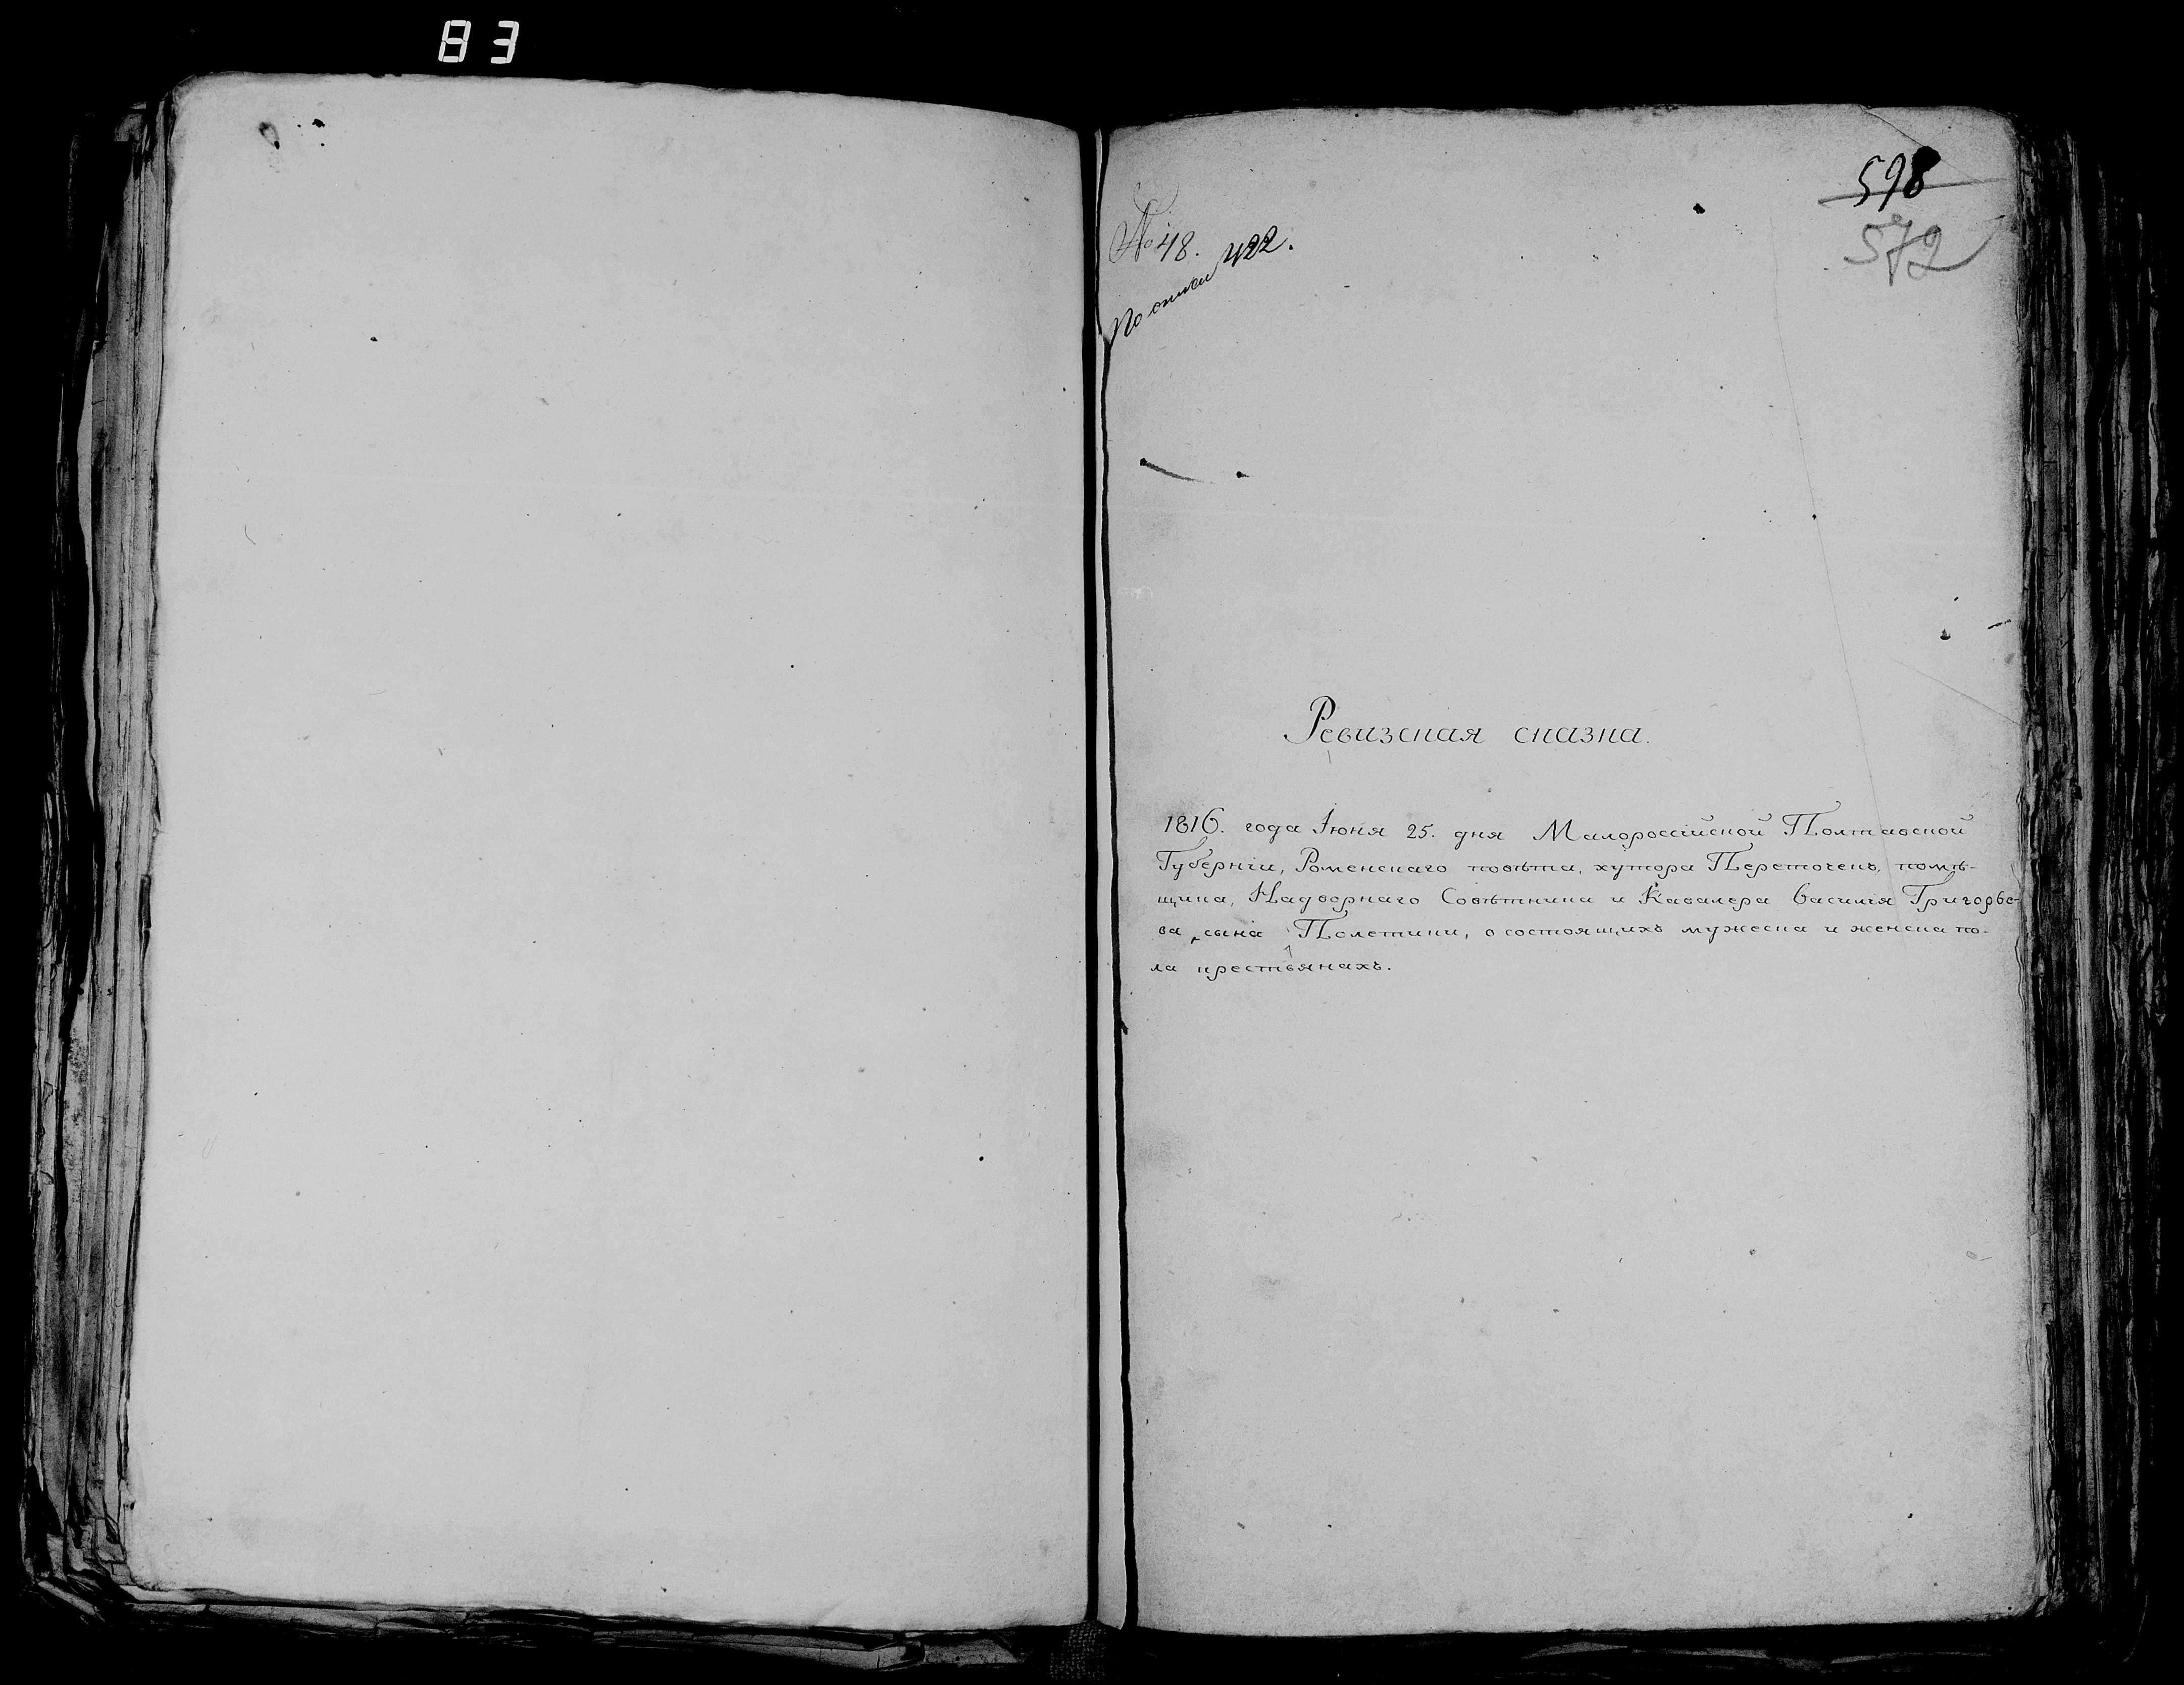 83
598
572
№ 48.
По описи 422.
Ревизская сказка.
1816. года Іюня 25. дня Малороссійской Полтавской
Губерніи, Роменскаго повѣта, хутора Переточекъ, помѣ-
щика, Надворнаго Совѣтника и Кавалера Василія Григорье-
ва сына Полетики, о состоящихъ мужеска и женска по-
ла крестьянахъ.